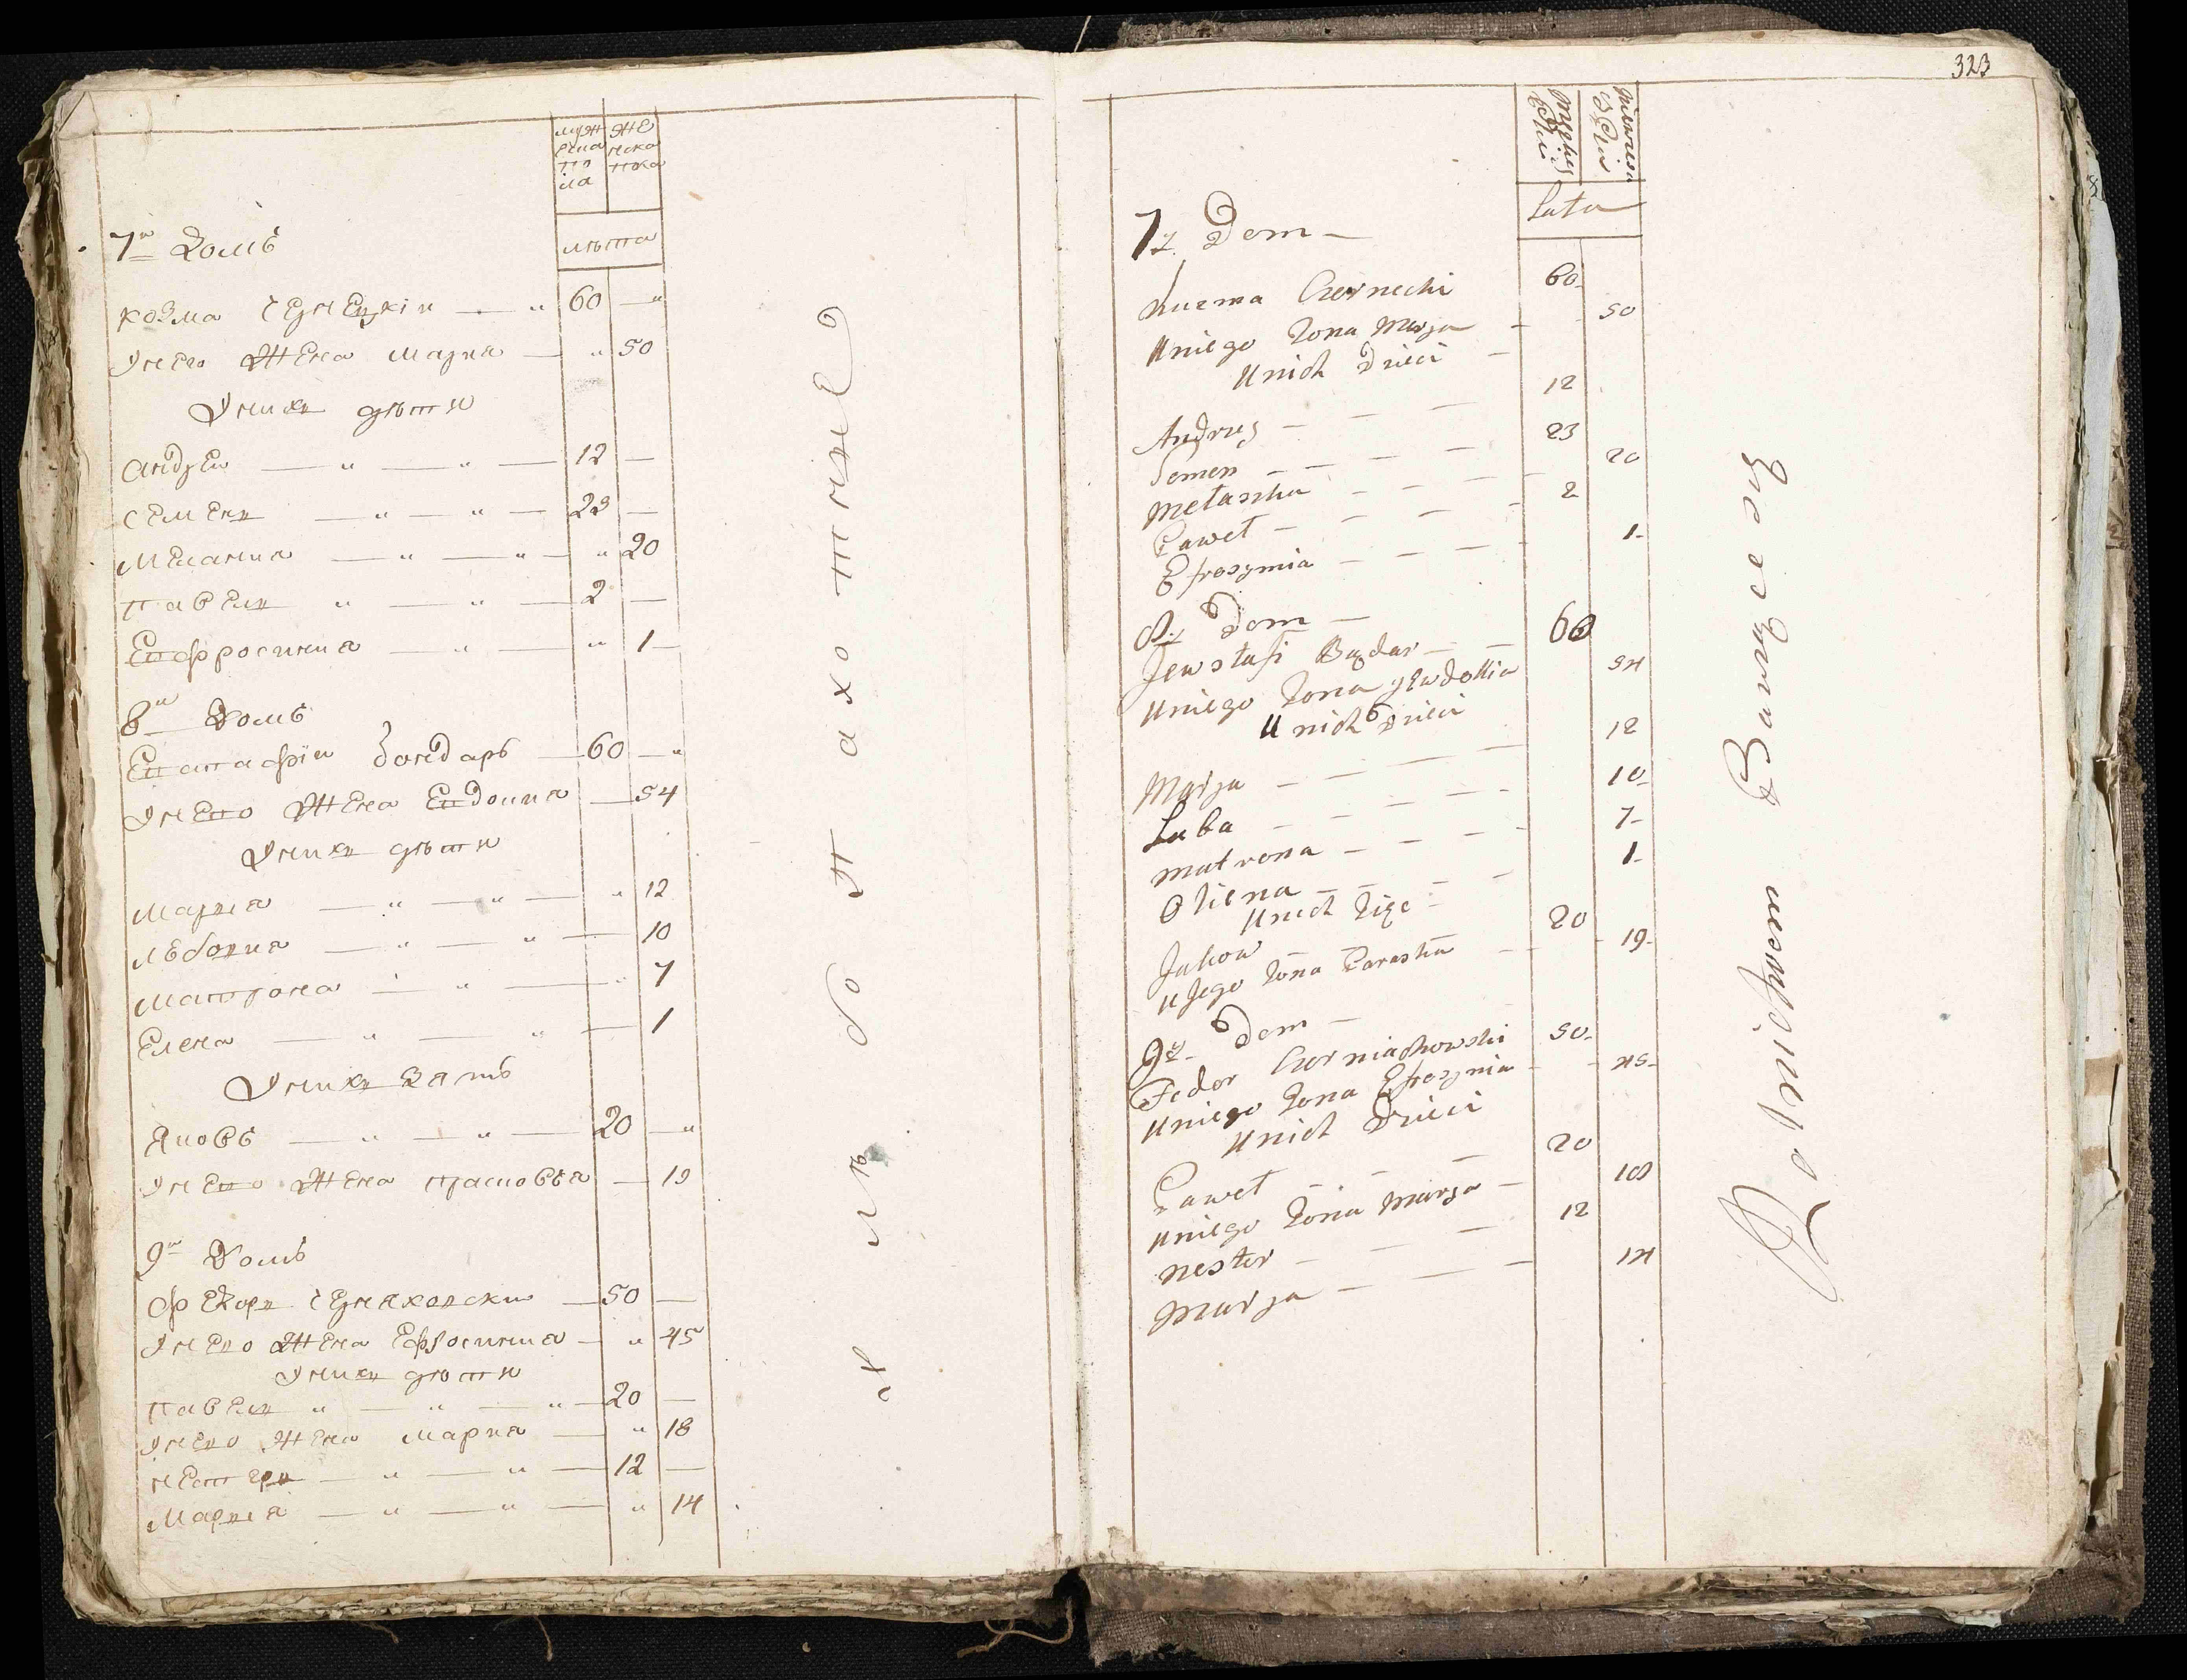 мужеска пола
женска пола
лѣта
7й Домъ
Козма Чернецкій — " 60 — "
У него жена Мария — " 50
У нихъ дѣти
Андрей — " — " — 12 —
Семенъ — " — " — 23 —
Мелания — " — " — " 20
Павелъ " — " — 2 —
Евфросиния — " — " 1 —
8й Домъ
Евстафій Бондарь — 60 — "
У него жена Евдокия — 54
У нихъ дѣти
Мария — " — " — " 12
Любовия — " — " — 10
Матрона — " — " 7
Елена — " — " — 1
У нихъ зять
Яковъ — " — " — 20 — "
У него жена Прасковѣя — 19
9й Домъ
Федоръ Черняховски — 50 —
У него жена Ефросиния — " 45
У нихъ дѣти
Павелъ " — " — " — 20 —
У него жена Мария — " 18
Нестеръ — " — " — 12 —
Мария — " — " — " 14
хлѣбопахотние
323
Męskiej Płci
Niewiesci Płci
Lata
7y Dom —
Kuzma Czernecki 60
U niego Żona Marja — 50
U nich Dzieci —
Andruy — — — 12
Semen — — — — 23
Melaszka — — — — 20
Paweł — — — — 2
Efrozymia — — — — 1
8y Dom —
Jewstafi Bądar — — 60
U niego Żona Jewdokia 54
U nich Dzieci
Marja — — — — 12
Luba — — — — 10
Matrona — — — — 7
Oliena — — — — 1
U nich Zięć
Jakow 20
U Jego Żona Paraska — 19
9y Dom —
Fedor Czerniachowski 50
U niego Żona Efrozynia — 45
U nich Dzieci
Paweł — — — 20
U niego Żona Marja — 18
Nester — — — 12
Marja — — — 14
Rolnictwem Bawiące się